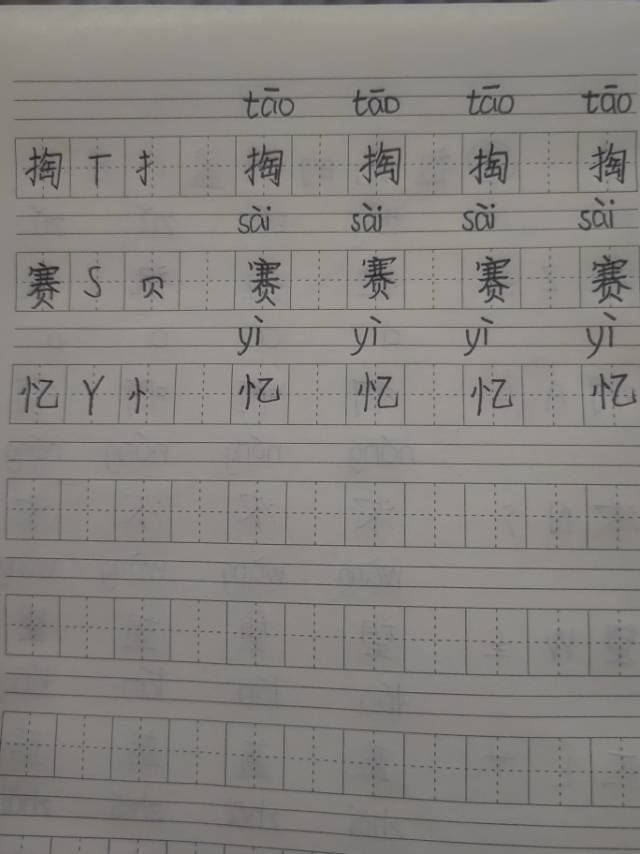 tāo tāo tāo tāo
掏 T 扌 掏 掏 掏 掏
sài sài sài sài
赛 S 贝 赛 赛 赛 赛
yì yì yì yì
忆 Y 忄 忆 忆 忆 忆